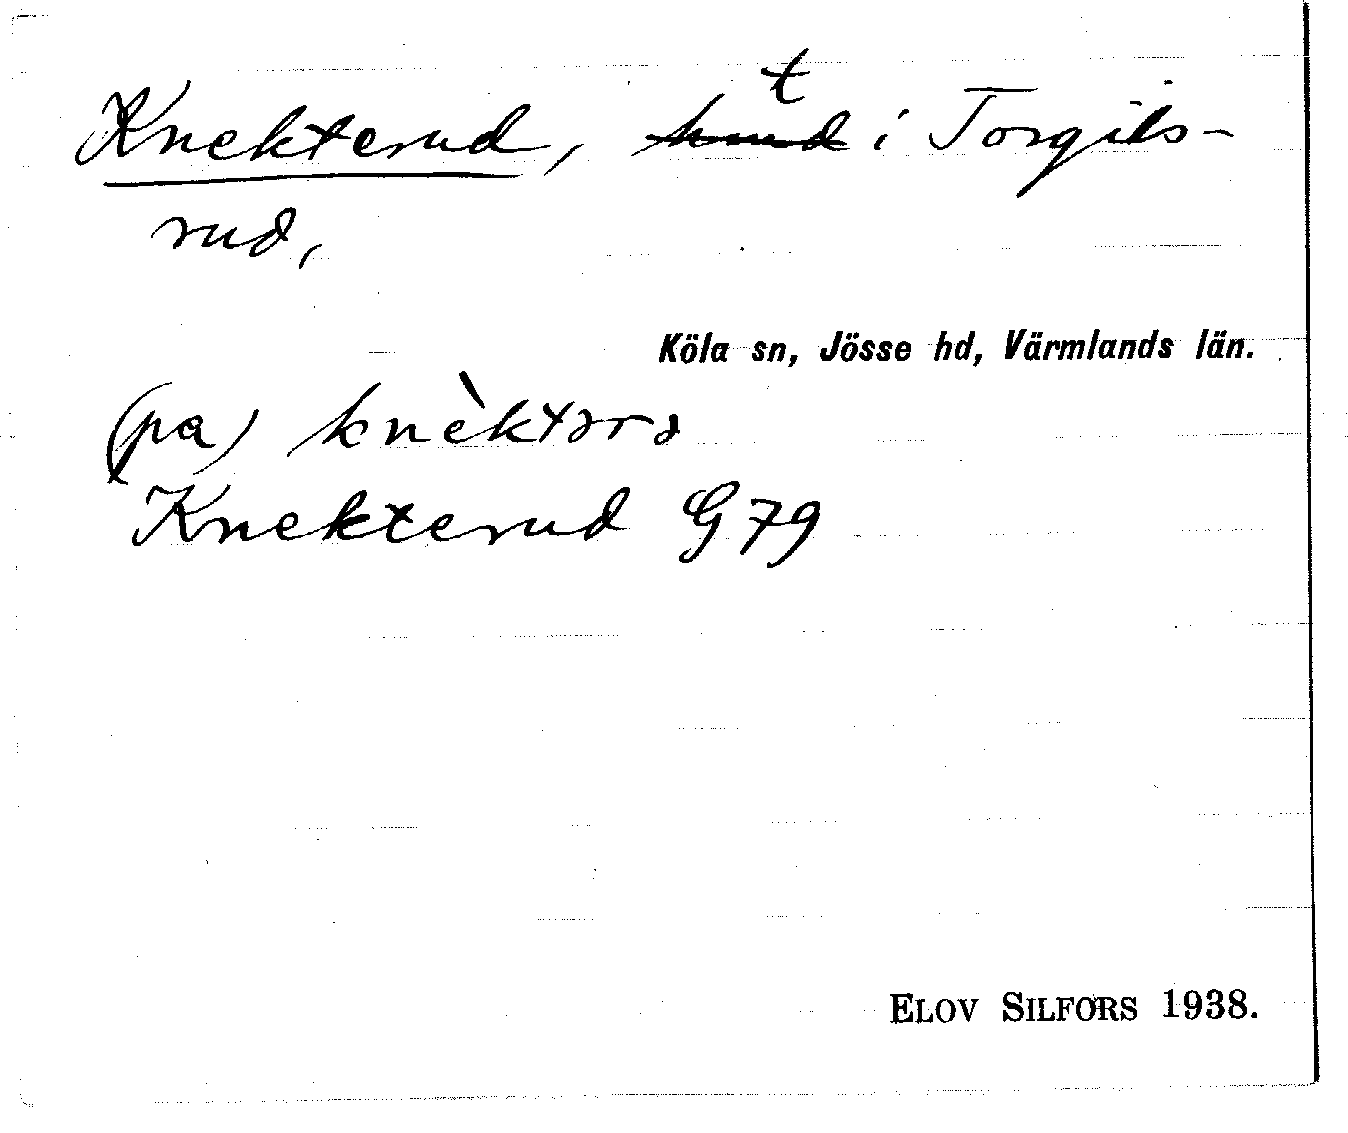 Knekterud, t i Torgils-
rud,
Köla sn, Jösse hd, Värmlands län.
(pa) knèktərə
Knekterud G79
ELOV SILFORS 1938.